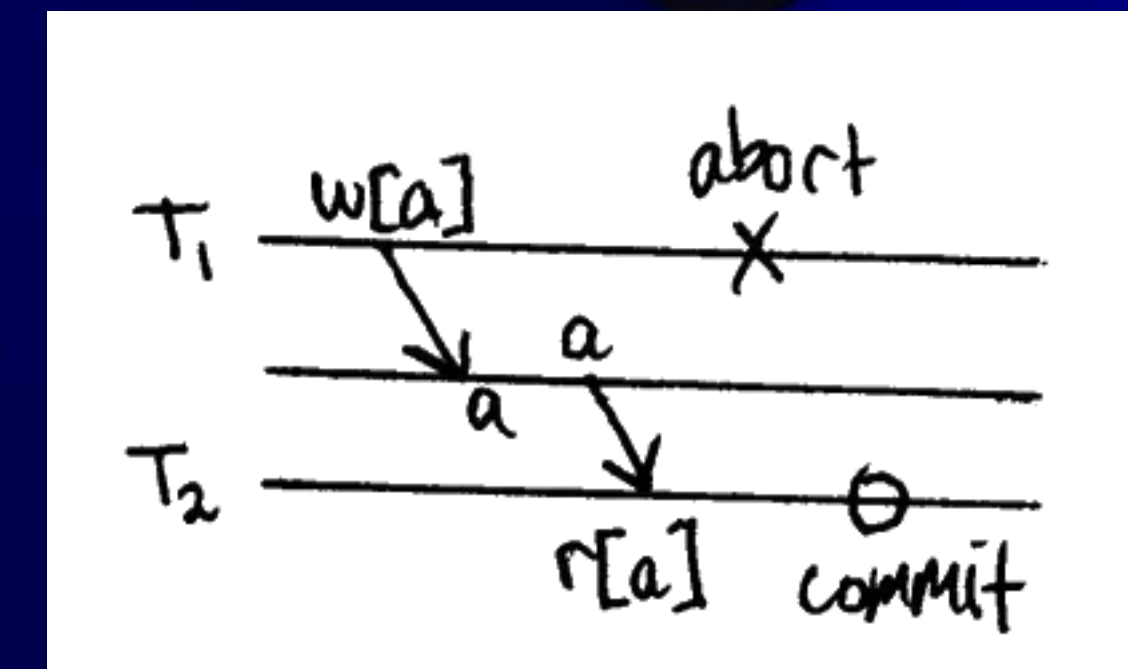 w[a]
abort
T₁
a
a
T₂
r[a]
commit